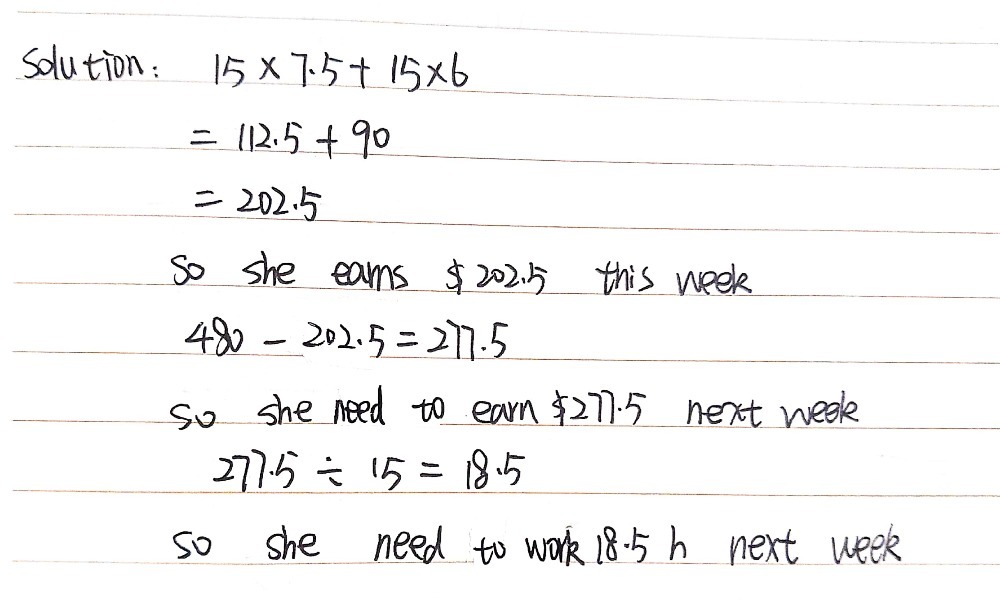 Solution: 15 × 7.5 + 15×6
= 112.5 + 90
= 202.5
So she earns $ 202.5 this week
480 - 202.5 = 277.5
so she need to earn $277.5 next week
277.5 ÷ 15 = 18.5
so she need to work 18.5 h next week